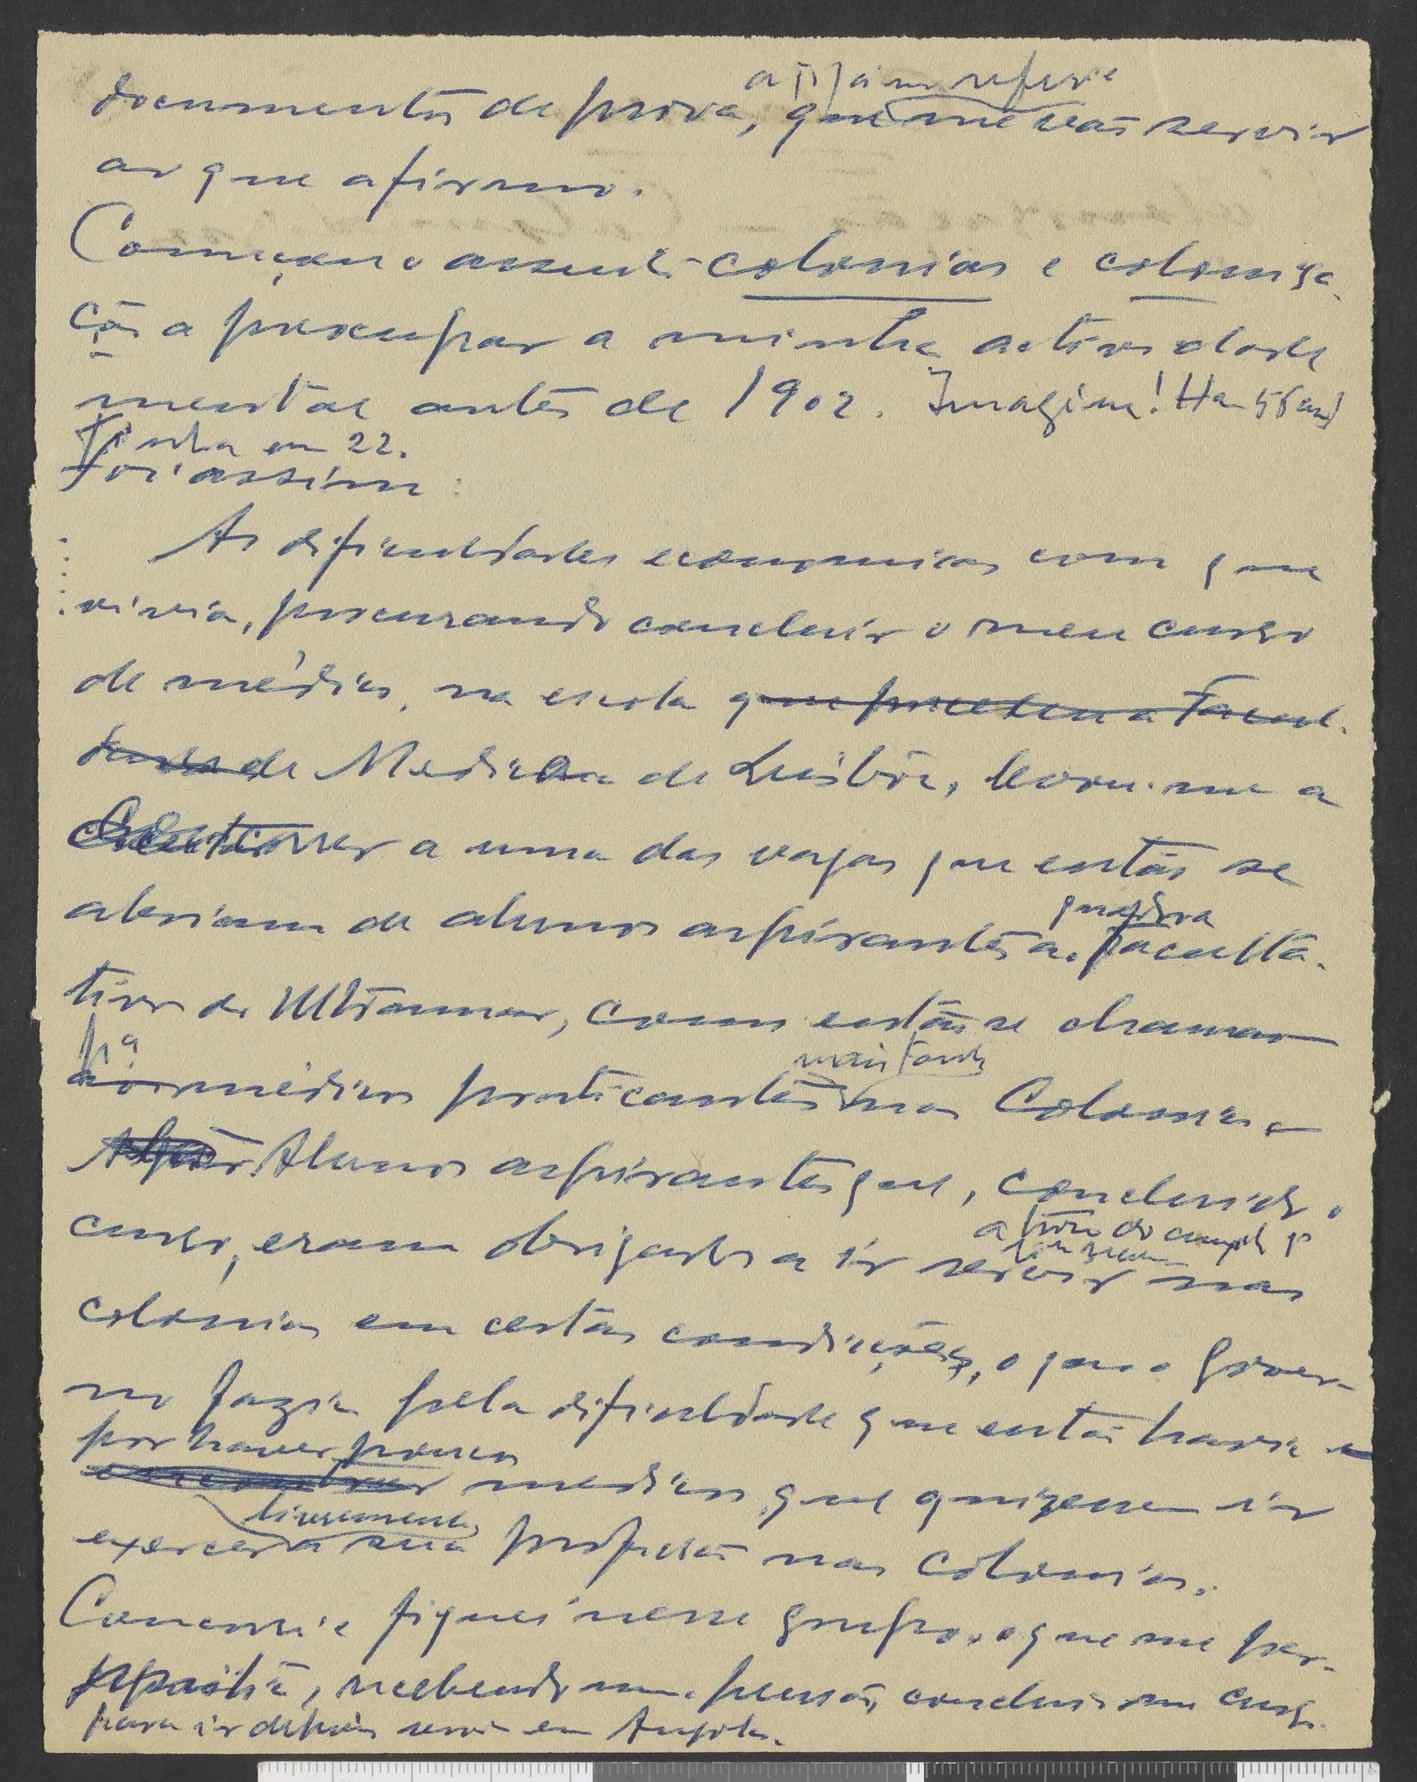 a q já me referi
documentos de prova, que me vão servir
ao que afirmo.
Começou o assunto colonias e coloniza-
ção a preocupar a minha actividade
mental antes de 1902. Imagine! Ha 56 anos
Tinha eu 22.
Foi assim:
As dificuldades economicas com que
vivia, procurando concluir o meu curso
de médico, na escola que precedeu a Facul-
dade de Medicina de Lisbôa, levou-me a
concorrer a uma das vagas que então se
abriam de alunos aspirantes a
facultá-
tivos do Ultramar, como então se chamava
pª
aos médicos praticantes mais tarde nas Colonias
Alunos aspirantes que, concluido o
curso, eram obrigados a ir servir nas
colonias em certas condições, o que o Gover-
no fazia pela dificuldade que então havia
por haver poucos
medicos que quizessem ir
livremente
exercer a sua profissão nas colonias.
Concorri e fiquei nesse grupo, o que me per-
mitia, recebendo uma pensão, concluir o meu curso
para ir depois servir em Angola.